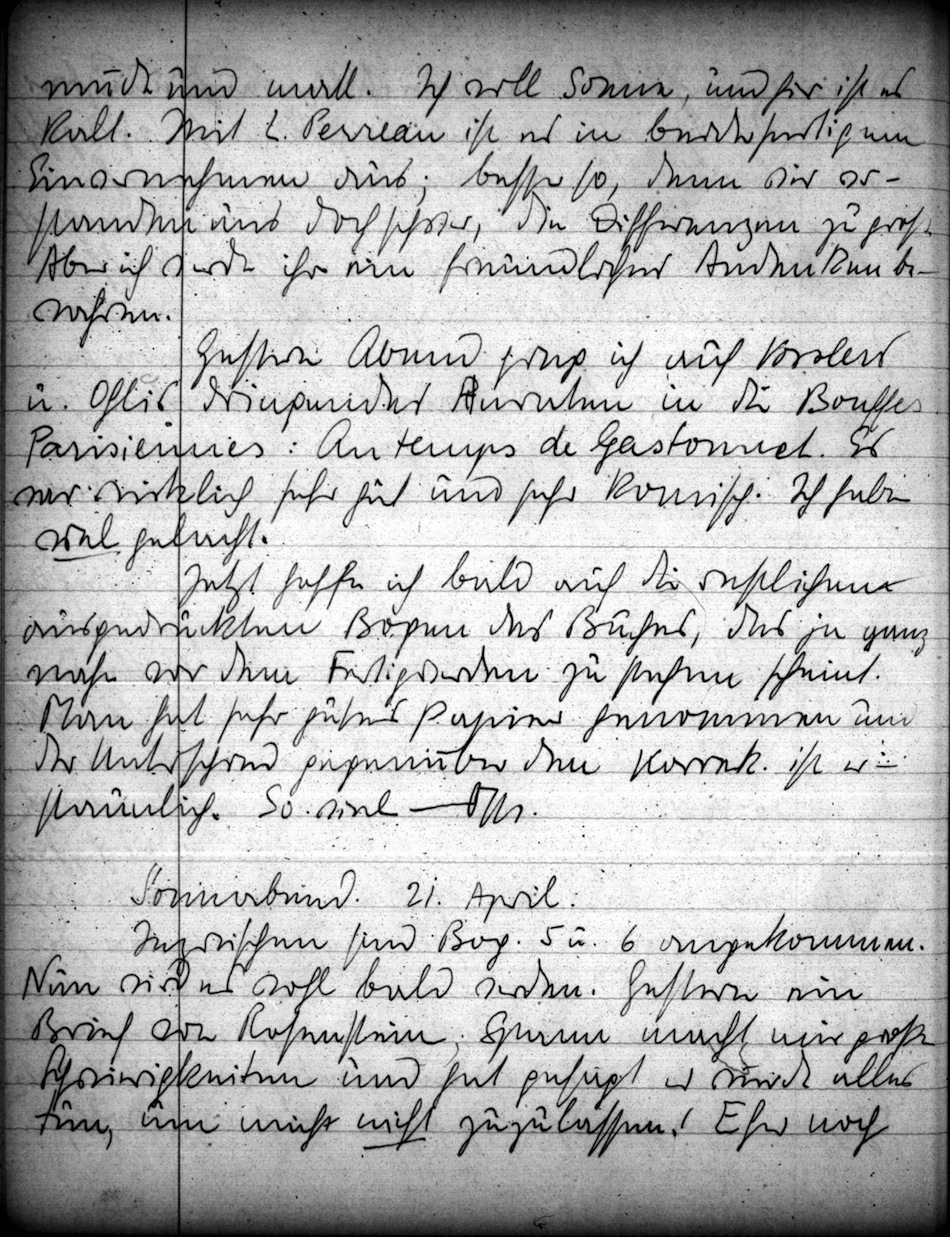 müde und matt. Ich will Sonne, und hier ist es
kalt. Mit L. Perreau ist es in beiderseitigem
Einvernehmen aus; besser so, denn wir ver-
standen uns doch schwer, die Differenzen zu gross.
Aber ich werde ihr ein freundliches Andenken be-
wahren.
Gestern Abend ging ich auf
u. dringendes Anraten in die Bouffes
Parisiennes: Au temps de Gastounet. Es
war wirklich sehr gut und sehr komisch. Ich habe
viel gelacht.
Jetzt hoffe ich bald auf die restlichen
ausgedruckten Bogen des Buches, das ja ganz
nahe vor dem Fertigwerden zu stehen scheint.
Man hat sehr gutes Papier genommen und
der Unterschied gegenüber den Korrek. ist er-
staunlich. So viel
Sonnabend. 21. April.
Inzwischen sind Bog. 5 u. 6 angekommen.
Nun wird es wohl bald werden. Gestern ein
Brief von Rosenstein. macht mir grosse
Schwierigkeiten und hat gesagt er würde alles
tun, um mich nicht zuzulassen! Eher noch